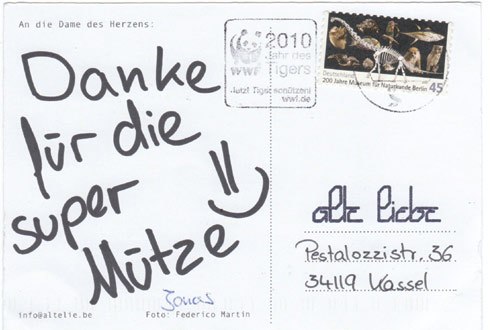 An die Dame des Herzens:
Danke
für die
super
Mütze =)
Jonas
info@altelie.be
Foto: Federico Martin
WWF
2010
Jahr des
Tigers
Jetzt Tiger schützen!
wwf.de
Deutschland
200 Jahre Museum für Naturkunde Berlin
45
alte liebe
Pestalozzistr. 36
34119 Kassel